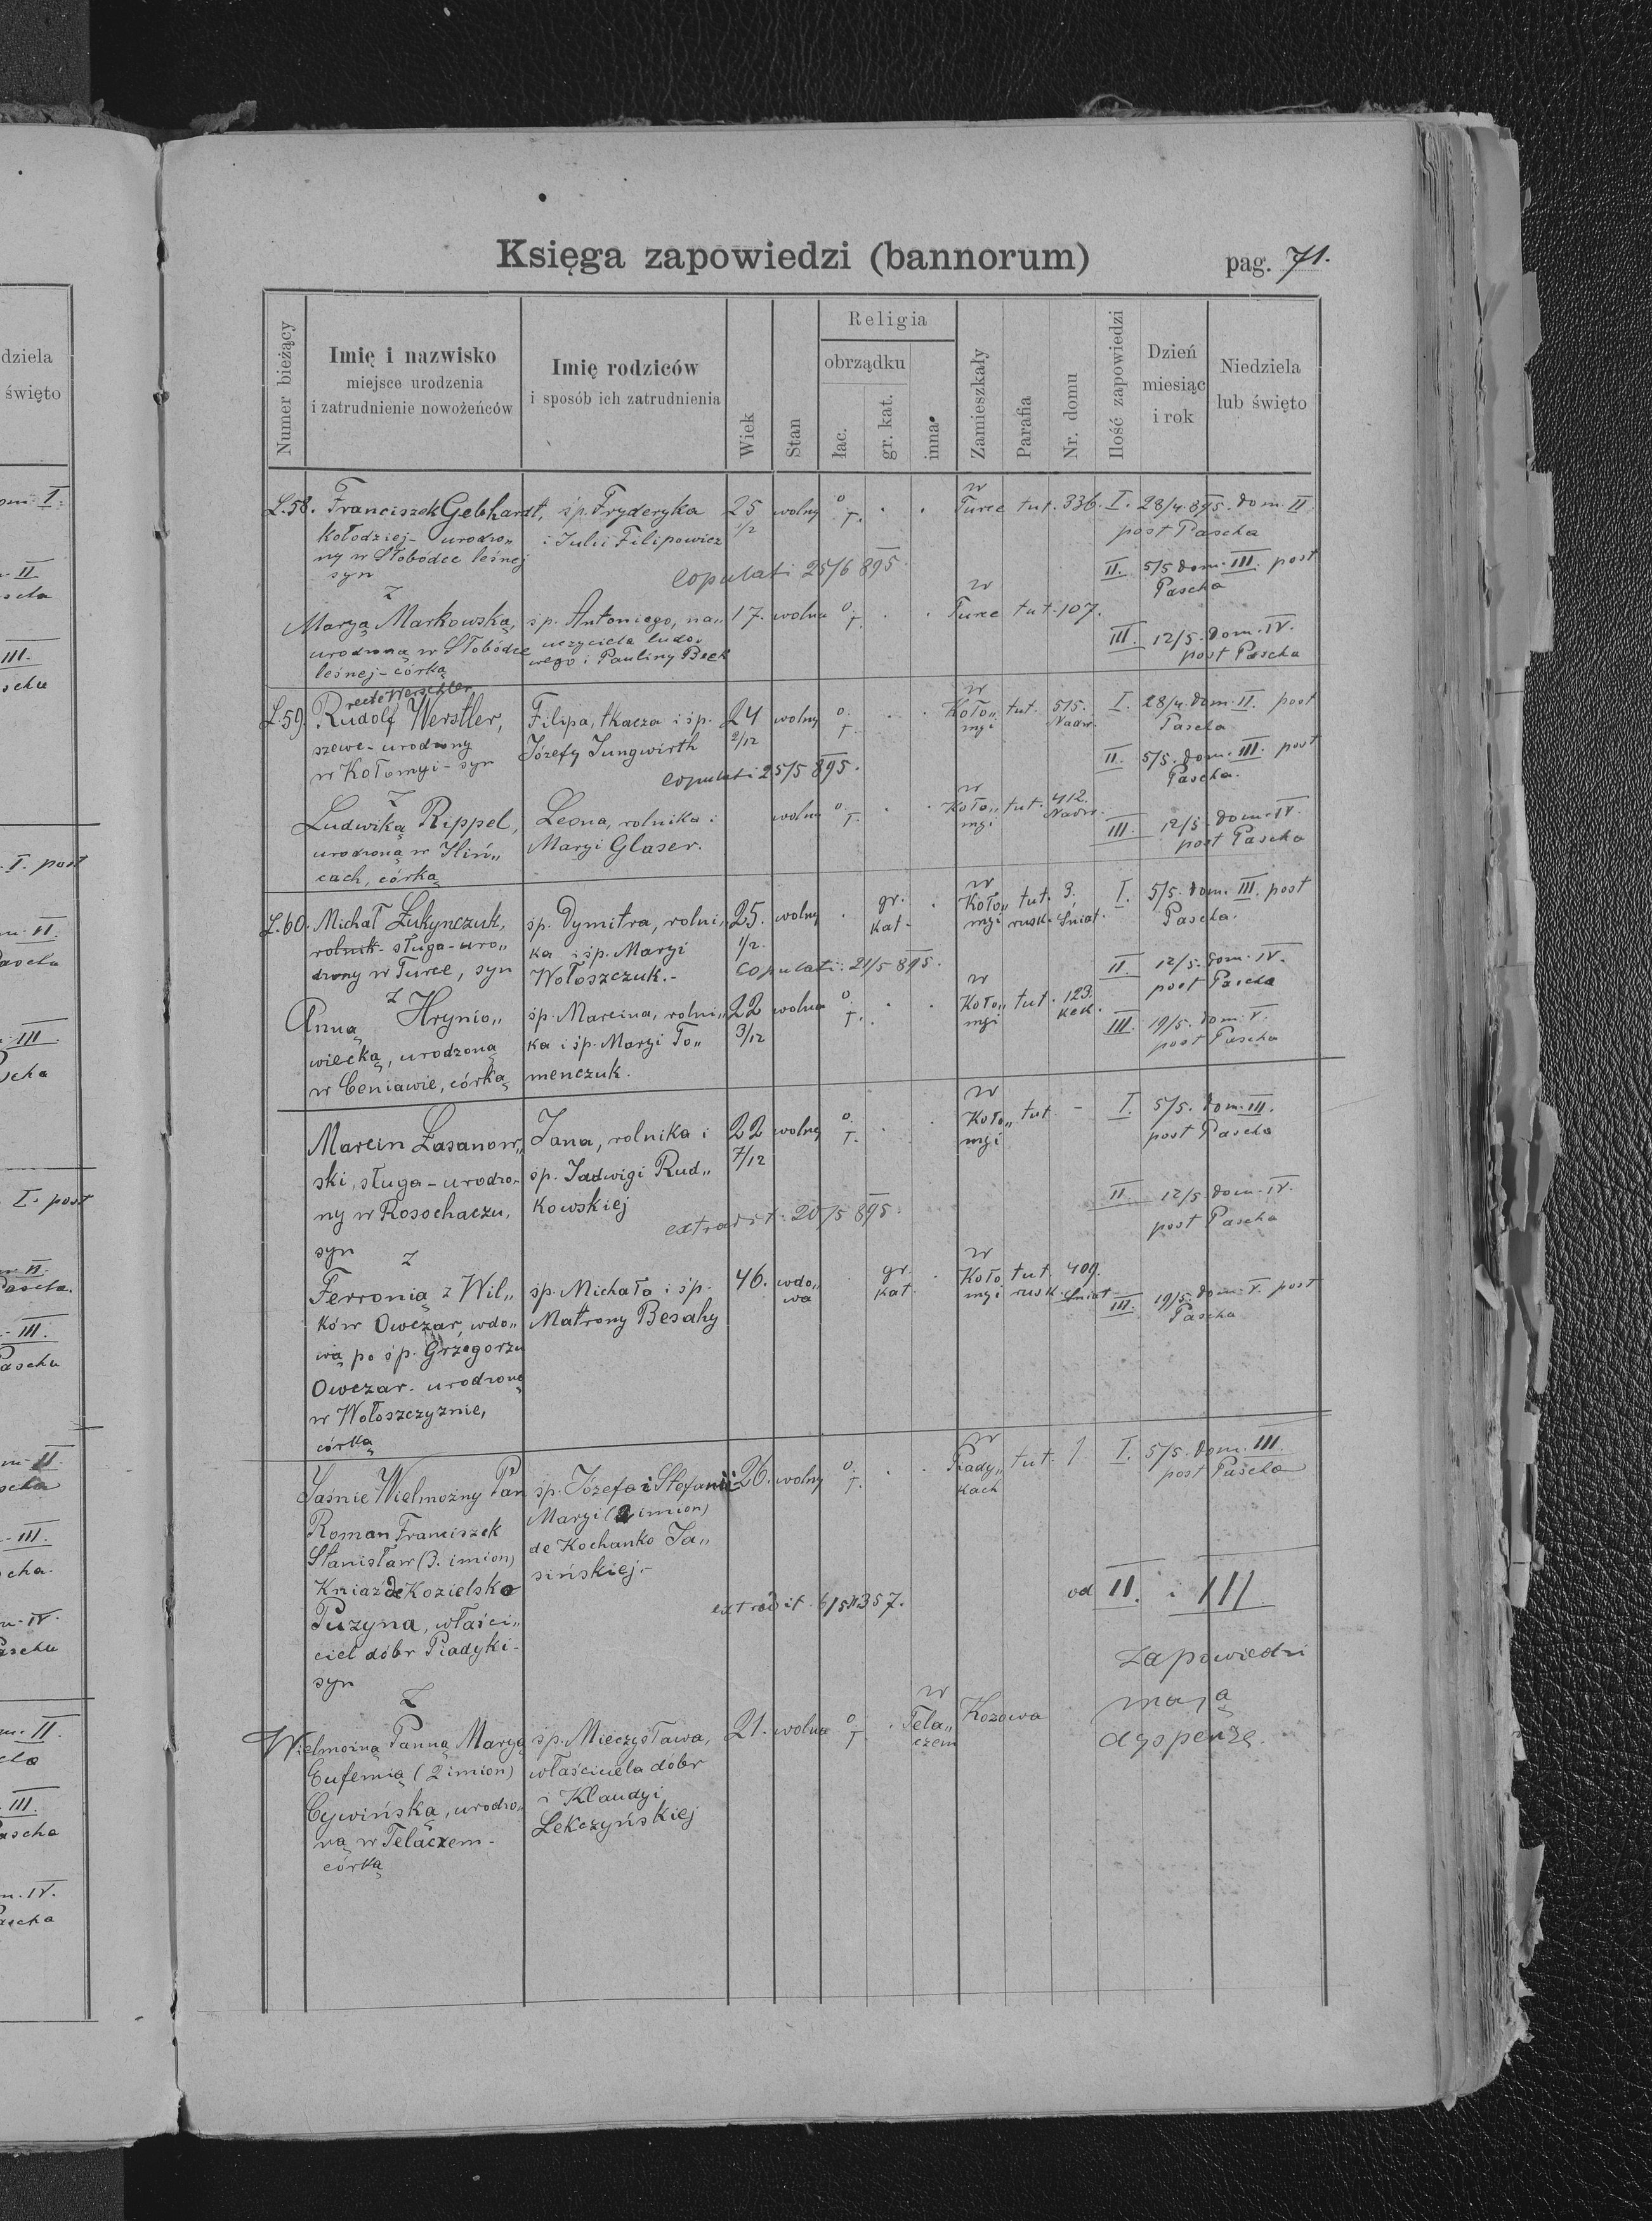 Księga zapowiedzi (bannorum)
pag. 71.
Numer bieżący
Imię i nazwisko
miejsce urodzenia
i zatrudnienie nowożeńców
Imię rodziców
i sposób ich zatrudnienia
Wiek
Stan
Religia
obrządku
łac.
gr. kat.
inna
Zamieszkały
Parafia
Nr. domu
Ilość zapowiedzi
Dzień
miesiąc
i rok
Niedziela
lub święto
L.58. Franciszek Gebhardt,
kołodziej - urodzo„
ny w Słobódce leśnej
syn
z
śp. Fryderyka
i Julii Filipowicz
25 1/2 wolny o. ł.
w Turce tut. 336.
I. 28/4 895. dom. II.
post Pascha
II. 5/5 dom. III. post
Pascha
III. 12/5. dom. IV.
post Pascha
copulati 25/6 895.
Maryą Markowską,
urodzoną w Słobódce
leśnej - córką
śp. Antoniego, na„
uczyciela ludo„
wego i Pauliny Beck
17. wolna o. ł.
w Turce tut. 107.
L.59. recte Werschler
Rudolf Werstler,
szewc - urodzony
w Kołomyi - syn
z
Filipa, tkacza i śp.
Józefy Jungwirth
24 2/12 wolny o. ł.
w Koło„
myi
tut. 515.
Nadw.
I. 28/4. dom. II. post
Pascha
II. 5/5. dom. III. post
Pascha.
III. 12/5. dom. IV.
post Pascha
copulati 25/5 895.
Ludwiką Rippel,
urodzoną w Iliń„
cach, córką
Leona, rolnika i
Maryi Glaser.
wolna o. ł.
w Koło„
myi
tut. 412.
Nadw.
L.60. Michał Łukynczuk,
rolnik - sługa - uro„
dzony w Turce, syn
z
śp. Dymitra, rolni„
ka i śp. Maryi
Wołoszczuk. -
25. 1/2. wolny gr.
kat.
w Koło„
myi
tut. 3.
rusk. Śniat.
I. 5/5. dom. III. post
Pascha.
II. 12/5. dom. IV.
post Pascha
III. 19/5. dom. V.
post Pascha
copulati: 21/5 895.
Anną Hrynio„
wiecką, urodzoną
w Ceniawie, córką
śp. Marcina, rolni„
ka i śp. Maryi To„
menczuk.
22 3/12 wolna o. ł.
w Koło„
myi
tut. 123.
Kek.
Marcin Łasanow„
ski, sługa - urodzo„
ny w Rosochaczu,
syn
z
Jana, rolnika i
śp. Jadwigi Rud„
kowskiej
22 7/12 wolny o. ł.
w Koło„
myi
tut. -
I. 5/5. dom. III.
post Pascha
II 12/5. dom. IV.
post Pascha
III. 19/5. dom. V. post
Pascha
extradit. 20/5 895.
Ferronią z Wil„
ków Owczar, wdo„
wą po śp. Grzegorzu
Owczar - urodzoną
w Wołoszczyznie,
córką
śp. Michała i śp.
Matrony Besahy
46. wdo„
wa
gr.
kat.
w Koło
myi
tut. 409.
rusk. Śniat.
Jaśnie Wielmożny Pan
Roman Franciszek
Stanisław (3. imion)
Kniaź de Kozielsko
Puzyna, właści„
ciel dóbr Piadyki -
syn
z
śp. Józefa i Stefanii
Maryi (2 imion)
de Kochanko Ja„
sińskiej. -
26. wolny o. ł.
w Piady„
kach
tut. 1.
I. 5/5. dom. III.
post Pascha
extradit. 6/5
od II. i III
zapowiedzi
mają
dyspenzę.
Wielmożną Panną Maryą
Eufemią (2 imion)
Cywińską, urodzo„
ną w Telaczem -
córką
śp. Mieczysława,
właściciela dóbr
i Klaudyi
Lekczyńskiej
21. wolna o. ł.
w Tela„
czem
Kozowa